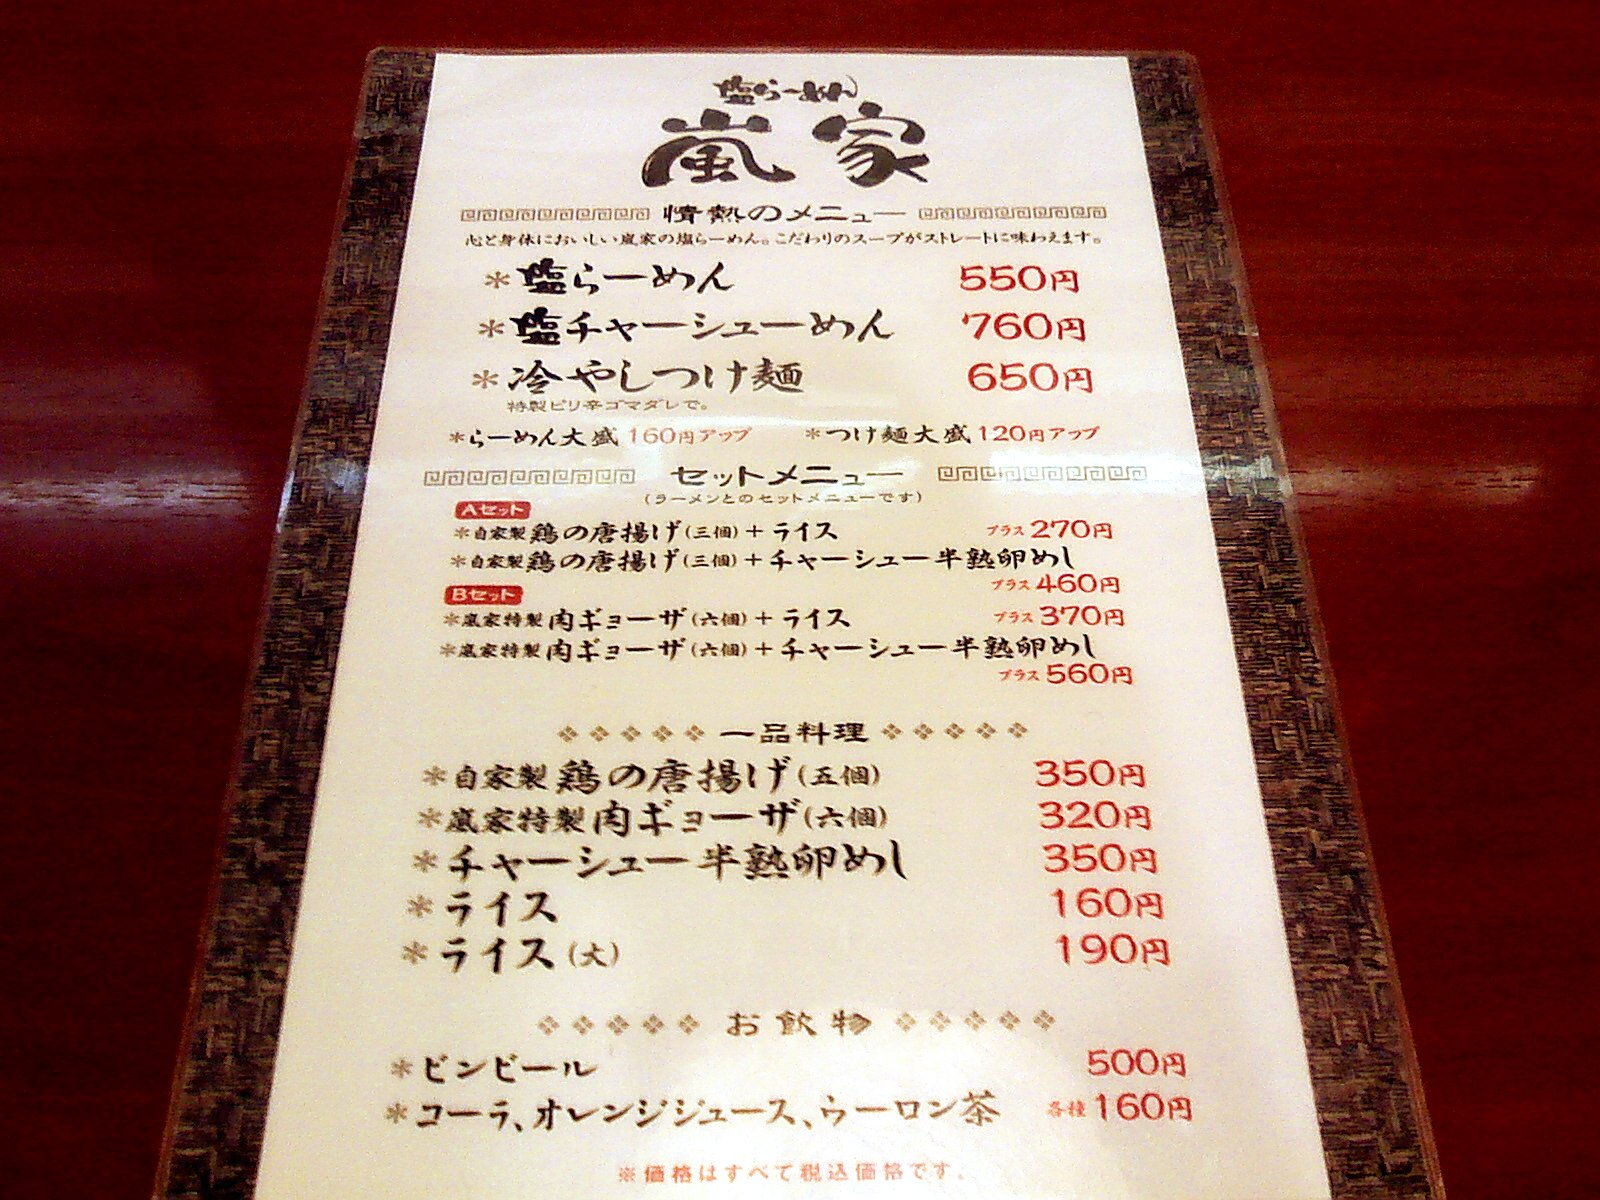 塩らーめん
嵐家
情熱のメニュー
心と身体においしい嵐家の塩らーめん。こだわりのスープがストレートに味わえます。
＊塩らーめん 550円
＊塩チャーシューめん 760円
＊冷やしつけ麺 650円
特製ピリ辛ゴマダレで。
＊らーめん大盛160円アップ ＊つけ麺大盛120円アップ
セットメニュー
(ラーメンとのセットメニューです)
Aセット
＊自家製鶏の唐揚げ(三個)+ライス プラス270円
＊自家製鶏の唐揚げ(三個)+チャーシュー半熟卵めし
プラス460円
Bセット
＊嵐家特製肉ギョーザ(六個)+ライス プラス370円
＊嵐家特製肉ギョーザ(六個)+チャーシュー半熟卵めし
プラス560円
一品料理
＊自家製鶏の唐揚げ(五個) 350円
＊嵐家特製肉ギョーザ(六個) 320円
＊チャーシュー半熟卵めし 350円
＊ライス 160円
＊ライス(大) 190円
お飲物
＊ビンビール 500円
＊コーラ、オレンジジュース、ウーロン茶 各種160円
※価格はすべて税込価格です。